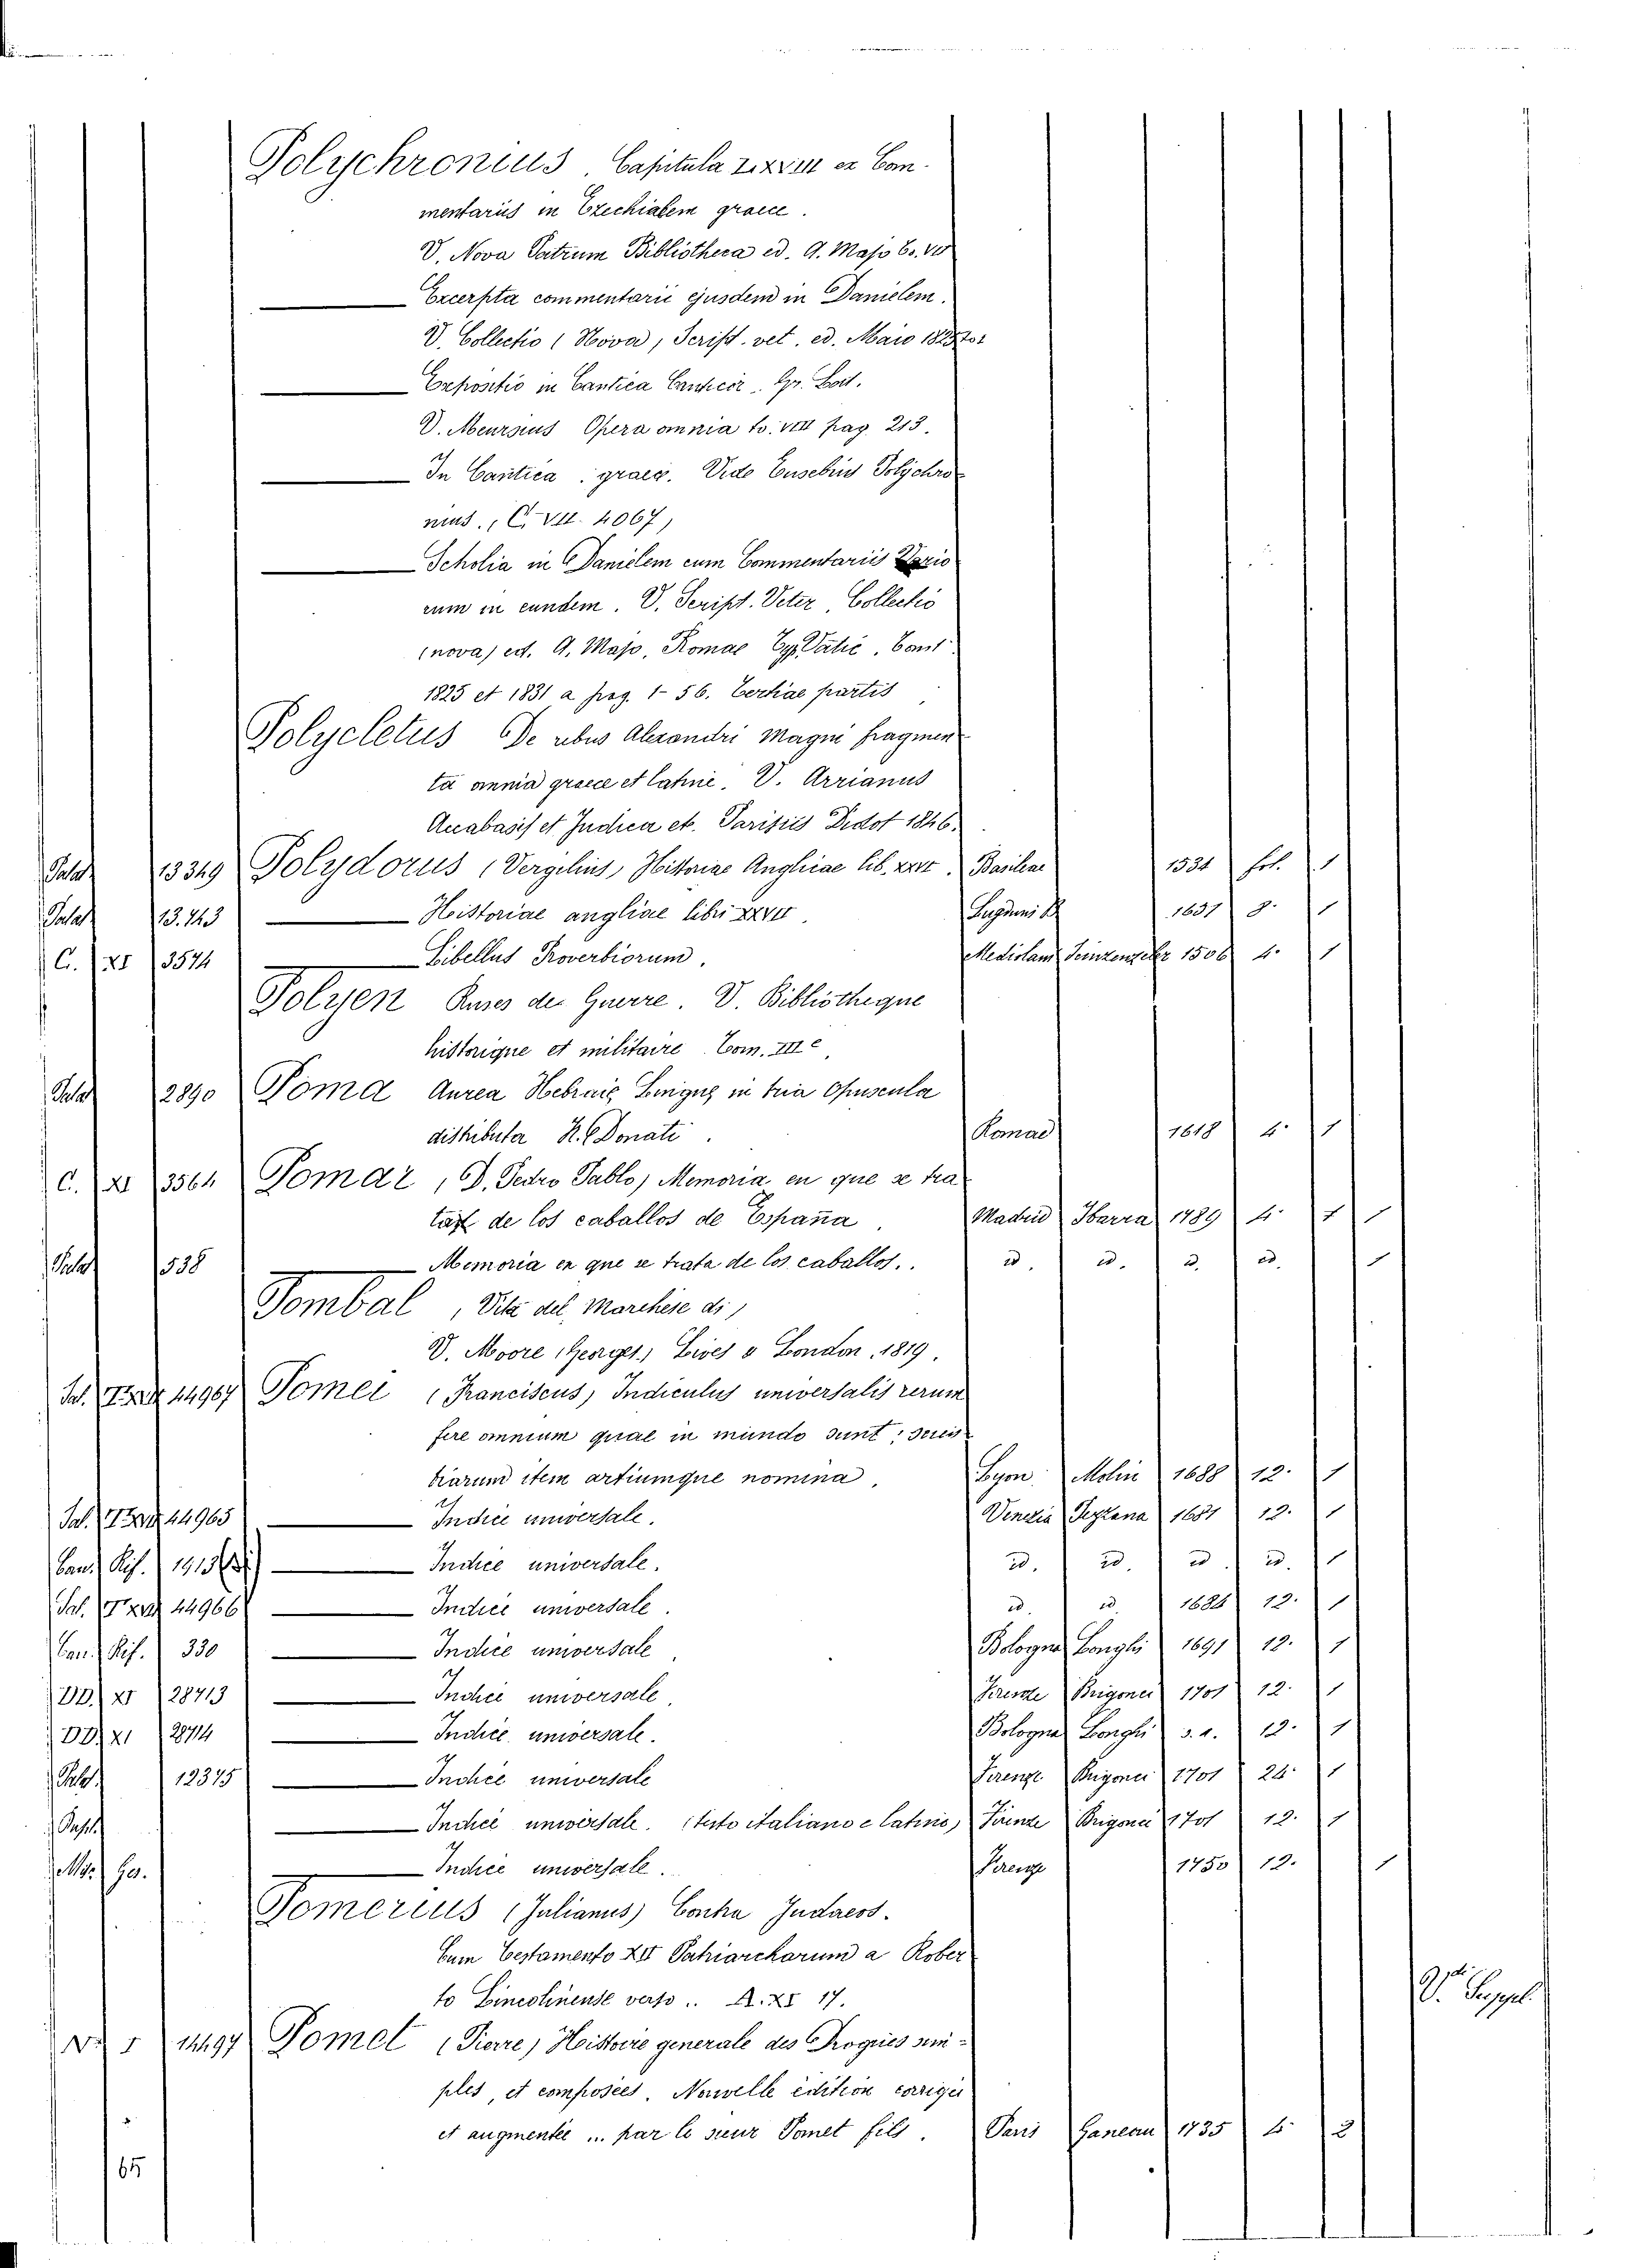 Polychronius. Capitula ex Com-
mentariis in Ezechialem graece.
V. Nova Patrum Bibliotheca ed. A. Majo to. VII
Excerpta commentarii ejusdem in Danielem.
V. Collectio (Nova) Script. vet. ed. Maio 1825 to 1
Expositio in Cantica Canticor. Gr. Lat.
V. Meursius Opera omnia to. VIII pag 213.
In Cantica graece. Vide Eusebius Polychro
nius. (C. VII. 4067)
Scholia in Danielem cum Commentariis Vario
rum in eundem. V. Script. Veter. Collectio
(nova) ed. A. Majo, Romae Typ. Vatic.
1825 et 1831 a pag. 1-56. Tertiae partis
Polycletus De rebus Alexandri Magni fragmen
ta omnia graece et latine. V. Arrianus
Anabasis et Indica etc. Parisiis Didot 1846.
Palat 13349 Polydorus (Vergilius) Historiae Angliae lib. XXVI. Basileae 1534 fol. 1
Palat 13.743 Historiae angliae libri XXVII. Lugduni B 1651 8. 1
C. XI 3574 Libellus Proverbiorum. Mediolani 1506 4. 1
Polyen Ruses de Guerre. V. Bibliotheque
historique et militaire Tom. III e
Palat 2890 Poma Aurea Hebraic Linguę in tria Opuscula
distributa R. Donati. Romae 1618 4. 1
C. XI 3564 Pomar, (D. Pedro Pablo) Memoria en que se tra
tan de los caballos de España. Madrid Ibarra 1789 4. 1 1
Palat 538 Memoria en que se trata de los caballos. id. id. id. id. 1
Pombal, (Vita del Marchese di)
V. Moore (Georges.) Lives London, 1819.
Pal. 44967 Pomei (Franciscus) Indiculus universalis rerum
fere omnium quae in mundo sunt; scien
tiarum item artiumque nomina. Lyon. Molin 1688 12. 1
Pal. 44965 Indice universale. Venezia 1681 12. 1
Can. Rif. 1913 Indice universale. id. id. id. id. 1
Pal. 44966 Indice universale. id. id. 1684 12. 1
Can. Rif. 330 Indice universale Bologna Longhi 1691 12. 1
DD. XI 28713 Indice universale. Firenze Brigonci 1701 12. 1
DD. XI 28714 Indice universale. Bologna Longhi s. a. 12. 1
Palat. 12375 Indice universale Firenze Brigonci 1701 24. 1
Indice universale. (testo italiano e latino) Firenze Brigonci 1701 12. 1
Indice universale. Firenze 1750 12. 1
Pomerius (Julianus) Contra Judaeos.
Cum Testamento XII Patriarcharum a Rober
to Lincolinense verso.. A. XI 17.
I 14497 Pomet (Pierre) Histoire generale des Drogues sim-
ples, et composées. Nouvelle édition corrigée
et augmentée ... par le sieur Pomet fils. Paris Ganeau 1735 4. 2
V. Suppl.
65